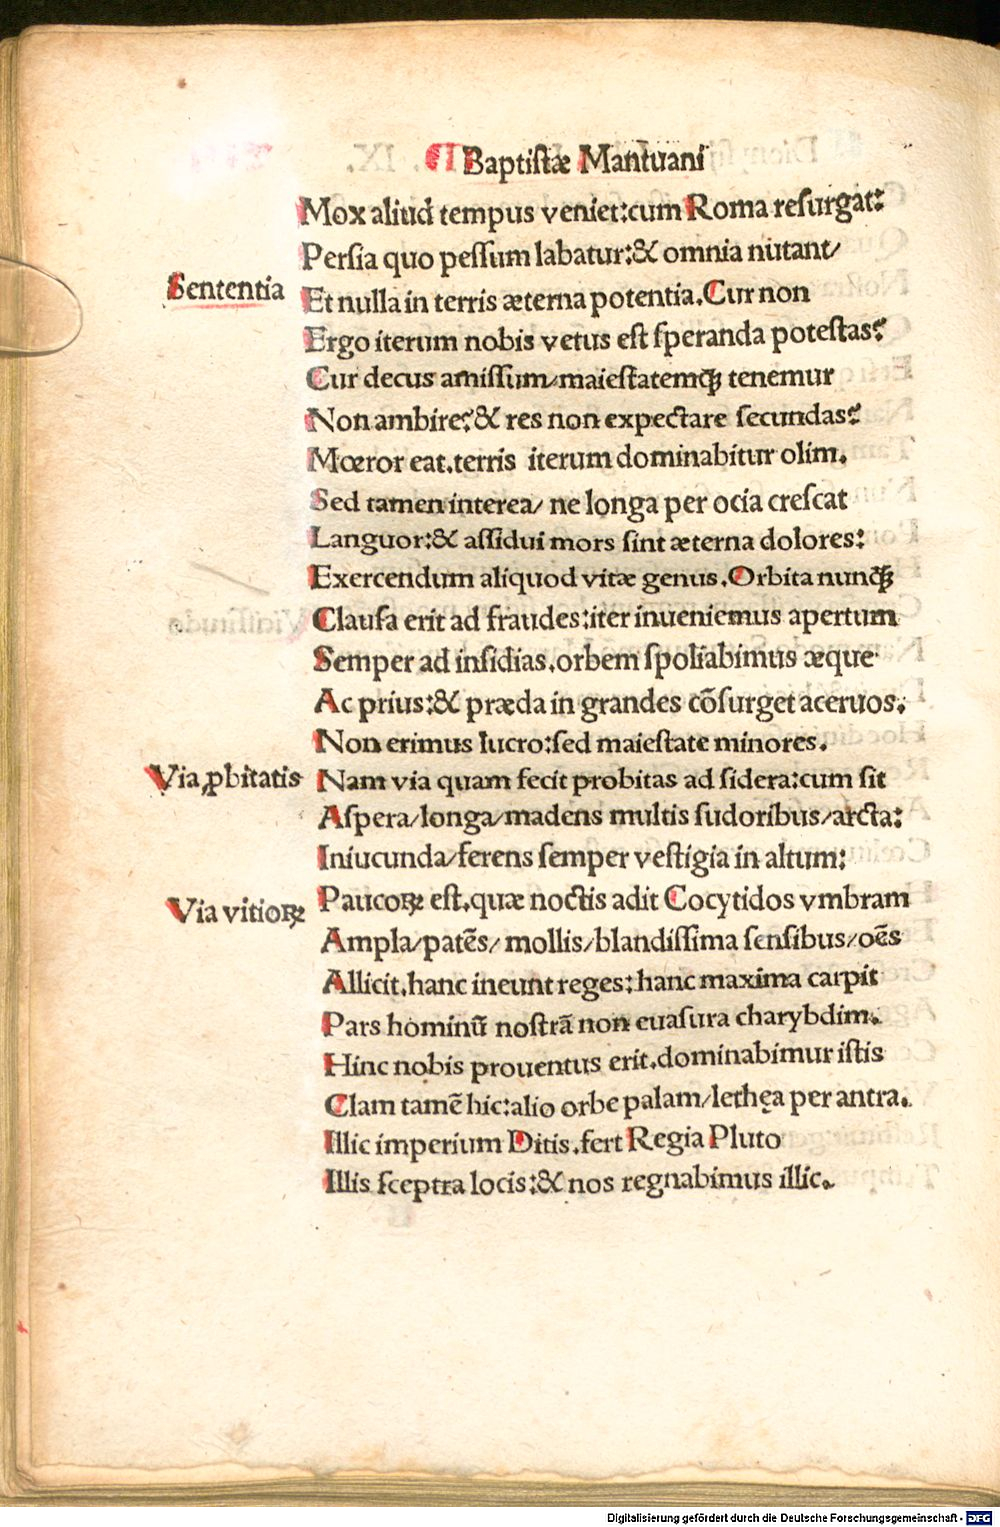 ¶ Baptistæ Mantuani
Mox aliud tempus veniet:cum Roma resurgat:
Persia quo pessum labatur:& omnia nutant/
Sententia
Et nulla in terris æterna potentia.Cur non
Ergo iterum nobis vetus est speranda potestas?
Cur decus amissum/maiestatemqꝫ tenemur
Non ambire?& res non expectare secundas?
Mœror eat.terris iterum dominabitur olim.
Sed tamen interea/ ne longa per ocia crescat
Languor:& assidui mors sint æterna dolores:
Exercendum aliquod vitæ genus.Orbita nunqꝫ
Clausa erit ad fraudes:iter inueniemus apertum
Semper ad insidias.orbem spoliabimus æque
Ac prius:& præda in grandes cōsurget aceruos.
Non erimus lucro:sed maiestate minores.
Via ꝓbitatis
Nam via quam fecit probitas ad sidera:cum sit
Aspera/longa/madens multis sudoribus/arcta:
Iniucunda/ferens semper vestigia in altum:
Via vitioꝝ
Paucoꝝ est.quæ noctis adit Cocytidos vmbram
Ampla/patēs/ mollis/blandissima sensibus/oēs
Allicit.hanc ineunt reges:hanc maxima carpit
Pars hominū nostrā non euasura charybdim.
Hinc nobis prouentus erit.dominabimur istis
Clam tamē hic:alio orbe palam/lethęa per antra.
Illic imperium Ditis.fert Regia Pluto
Illis sceptra locis:& nos regnabimus illic.
Digitalisierung gefördert durch die Deutsche Forschungsgemeinschaft - DFG